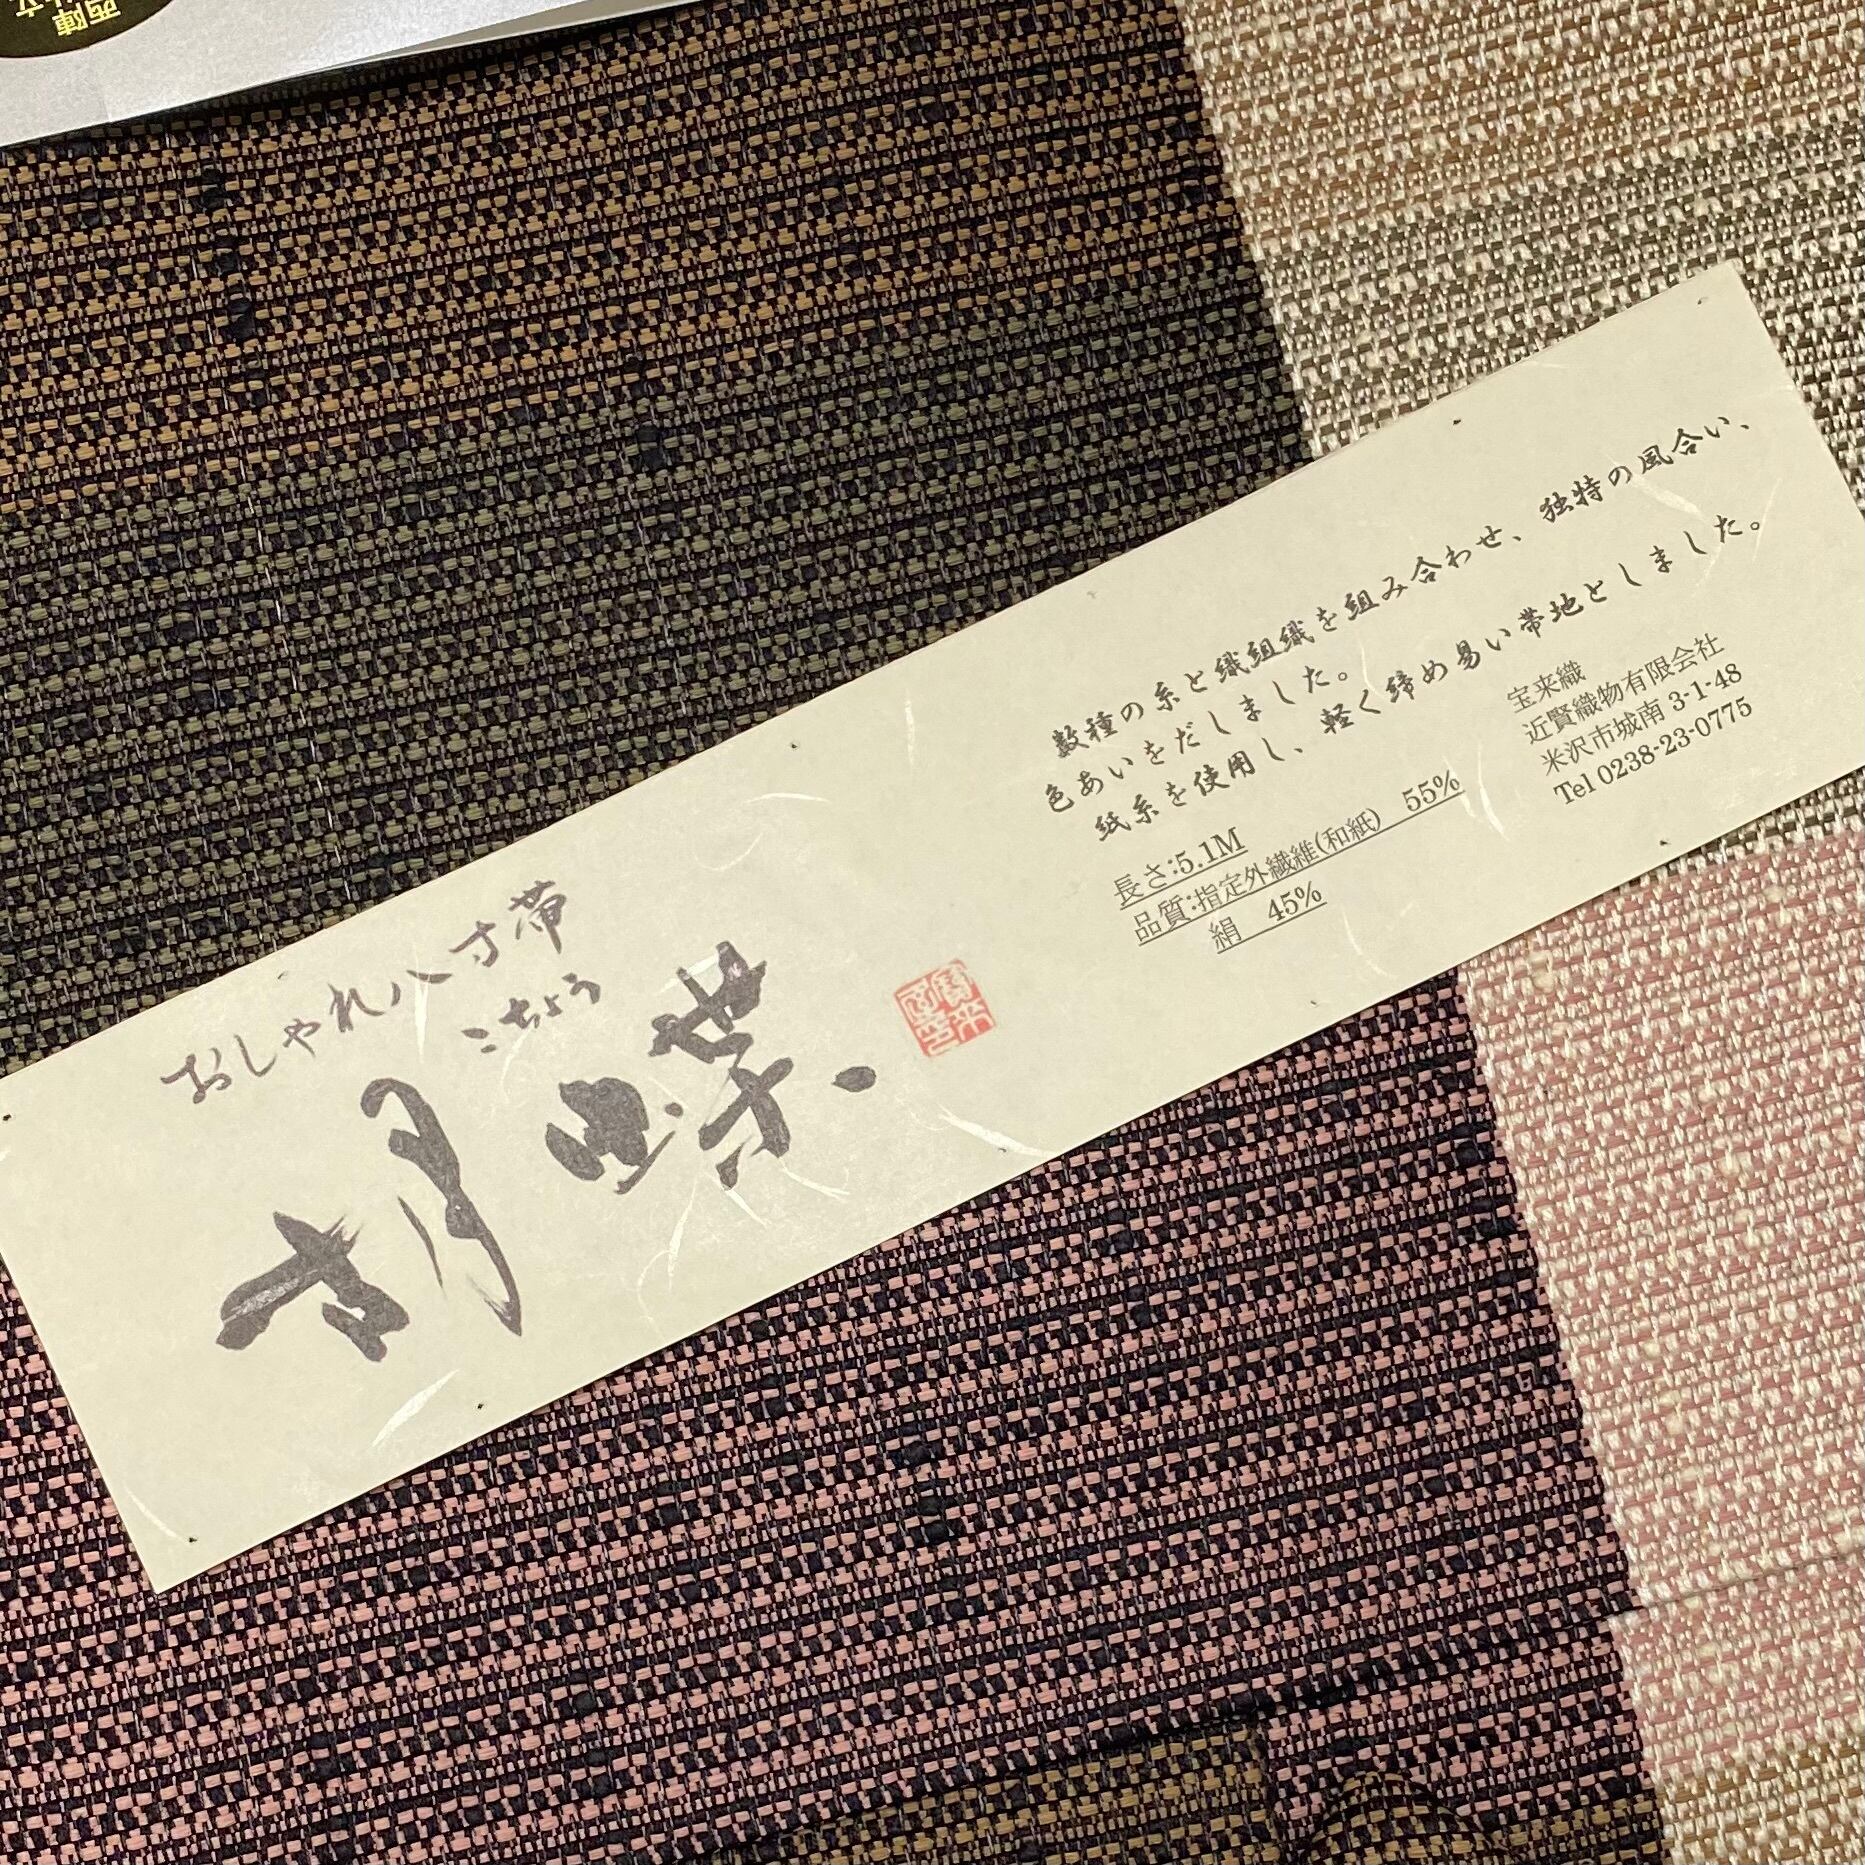 西陣
おしゃれ八寸帯
こちょう
胡蝶
数種の糸と織組織を組み合わせ、独特の風合い、
色あいをだしました。
紙糸を使用し、軽く締め易い帯地としました。
長さ:5.1M
品質:指定外繊維(和紙) 55%
絹 45%
宝来織
近賢織物有限会社
米沢市城南3-1-48
Tel 0238-23-0775